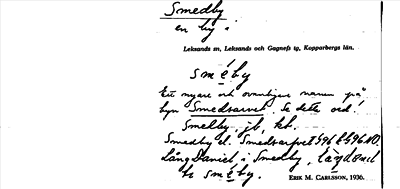 Smedby
en by i
Leksands sn, Leksands och Gagnefs tg, Kopparbergs län.
smeby
Ett nyare och ovanligare namn på
byn Smedsarvet. Se detta ord!
Smedby, jb, kb.
Smedby el. Smedsarfvet
Lång Daniel i Smedby,
smeby.
ERIK M. CARLSSON, 1936.